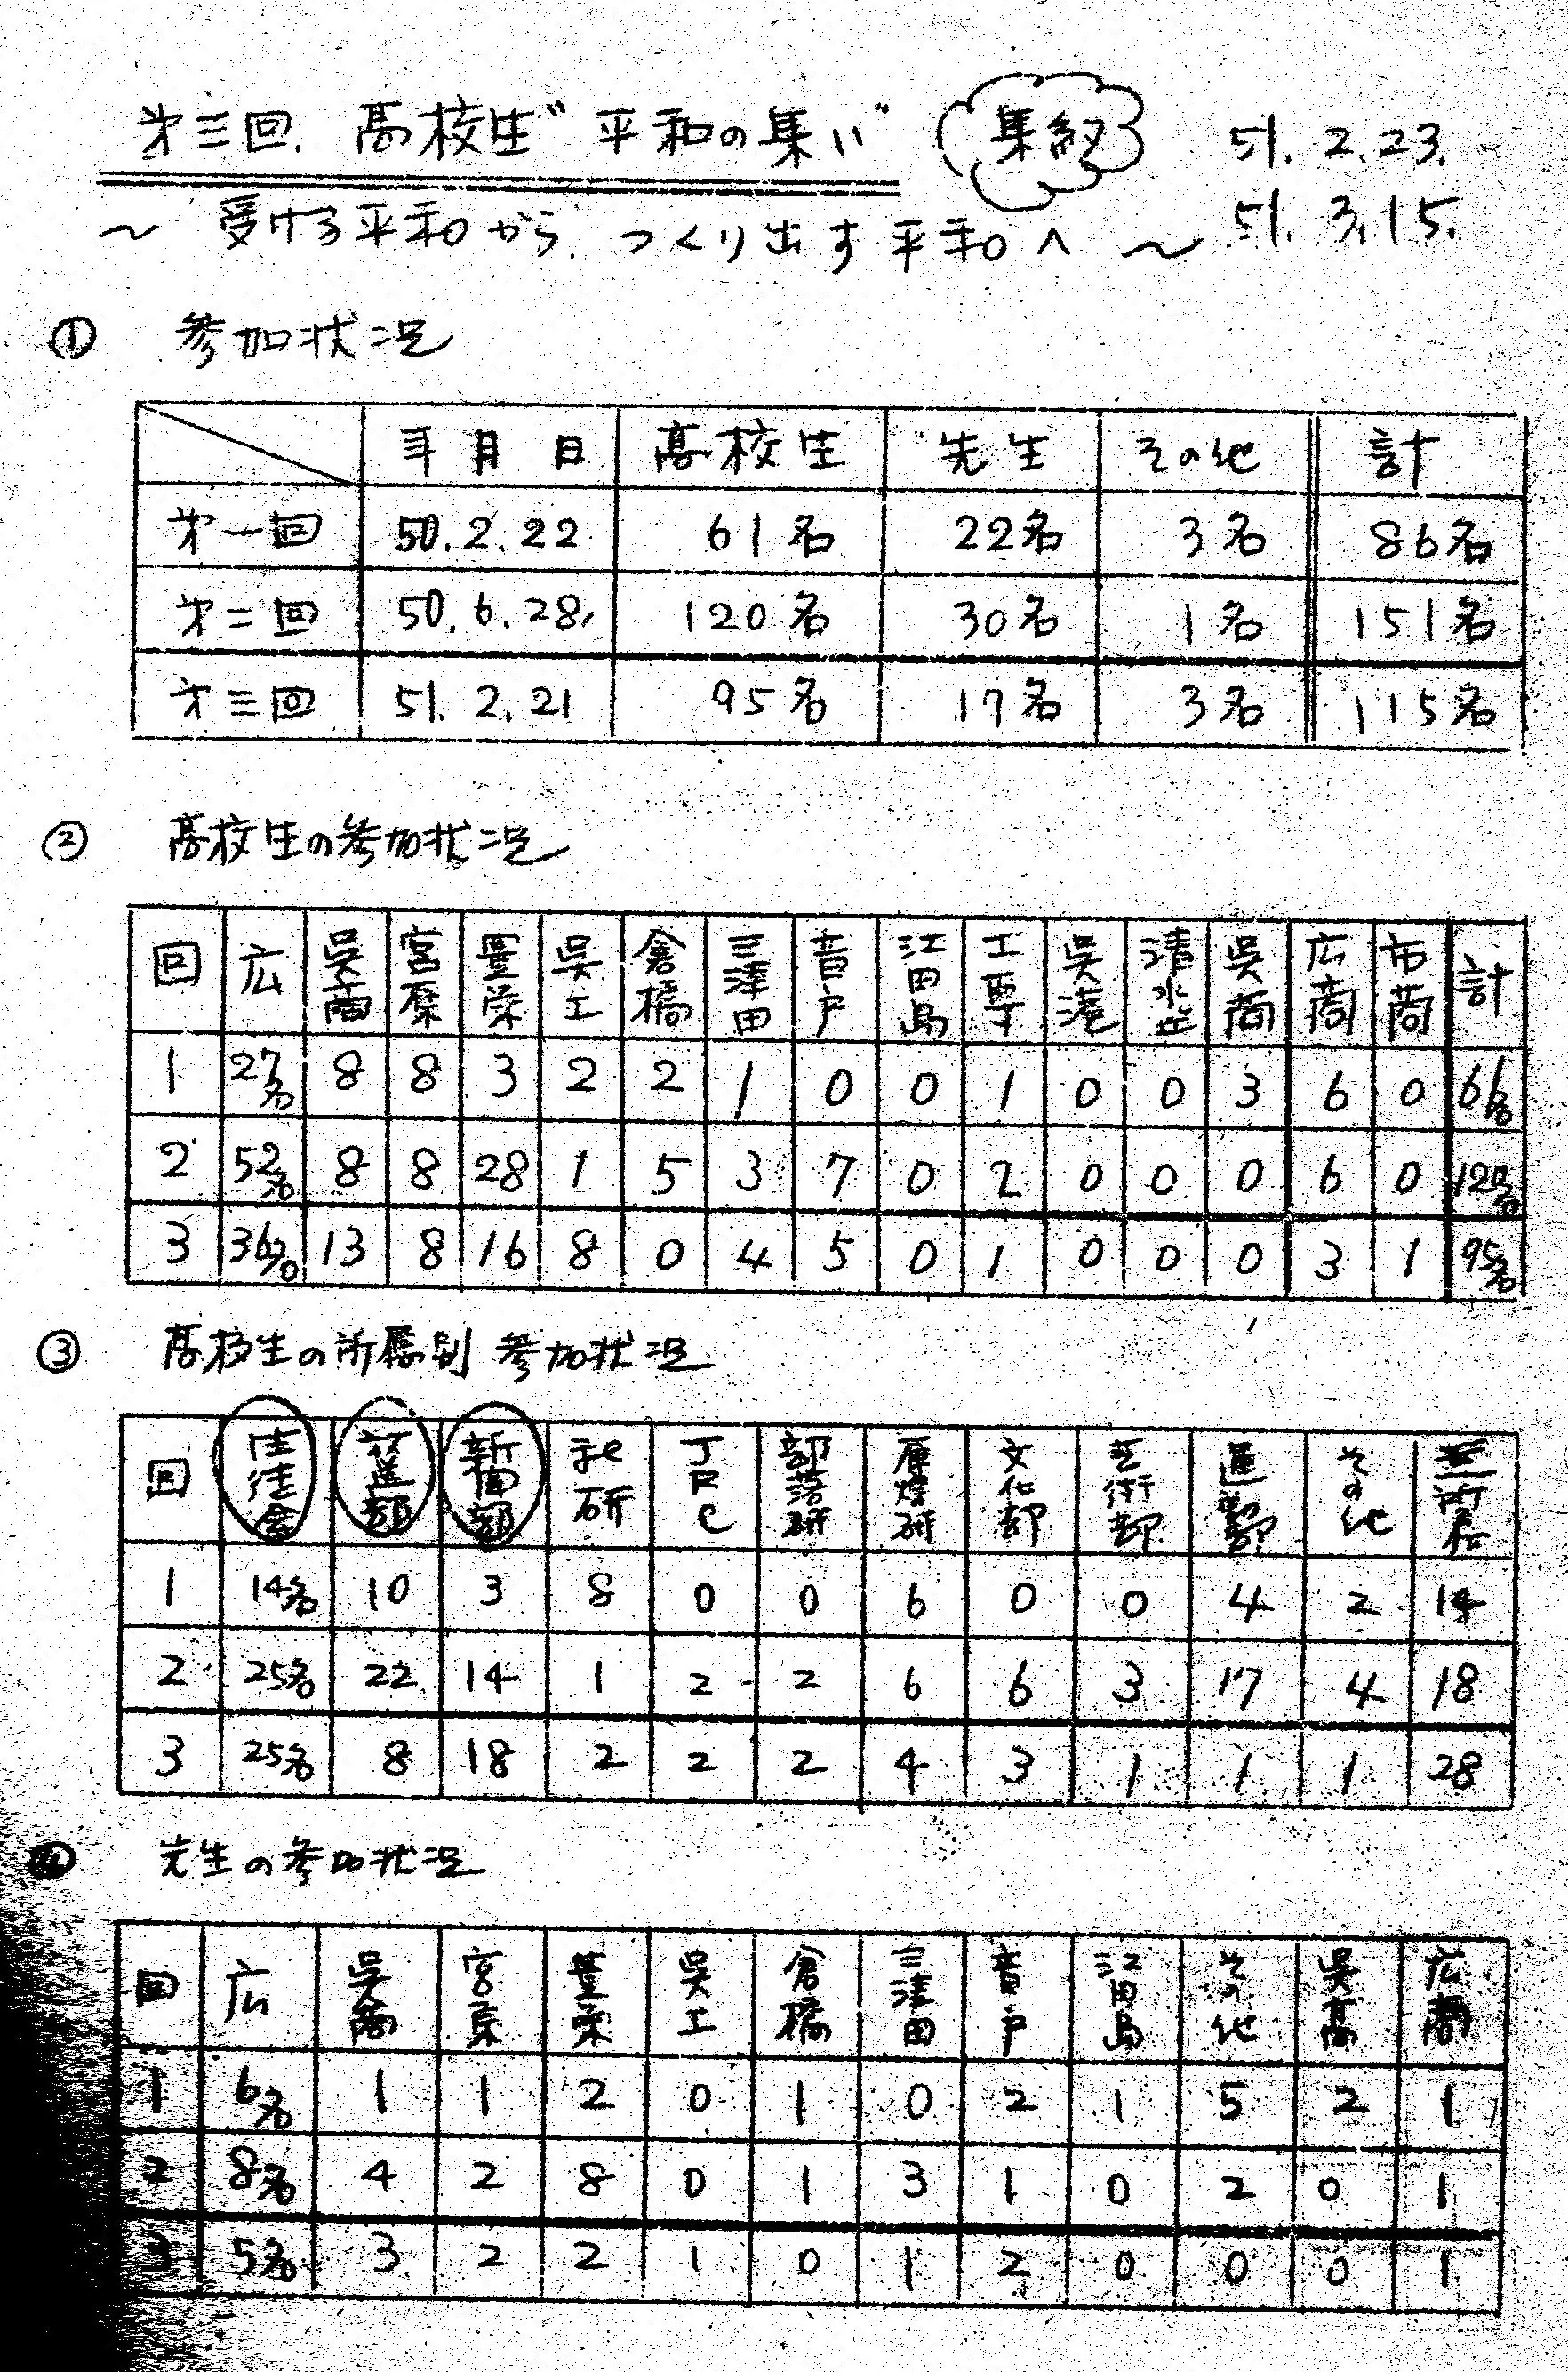 第三回. 高校生"平和の集い" 集録 51. 2. 23.
〜 受ける平和から つくり出す平和へ 〜 51. 3. 15.
① 参加状況
年月日 高校生 先生 その他 計
第一回 50. 2. 22 61名 22名 3名 86名
第二回 50. 6. 28. 120名 30名 1名 151名
第三回 51. 2. 21 95名 17名 3名 115名
② 高校生の参加状況
回 広 呉商 宮原 豊栄 呉工 倉橋 三津田 音戸 江田島 工専 呉港 清水ヶ丘 呉商 広商 市商 計
1 27名 8 8 3 2 2 1 0 0 1 0 0 3 6 0 61名
2 52名 8 8 28 1 5 3 7 0 2 0 0 0 6 0 120名
3 36名 13 8 16 8 0 4 5 0 1 0 0 0 3 1 95名
③ 高校生の所属別 参加状況
回 生徒会 放送部 新聞部 社研 JRC 部落研 原爆研 文化部 芸術部 運動部 その他 無所属
1 14名 10 3 8 0 0 6 0 0 4 2 14
2 25名 22 14 1 2 2 6 6 3 17 4 18
3 25名 8 18 2 2 2 4 3 1 1 1 28
④ 先生の参加状況
回 広 呉商 宮原 豊栄 呉工 倉橋 三津田 音戸 江田島 その他 呉高 広商
1 6名 1 1 2 0 1 0 2 1 5 2 1
2 8名 4 2 8 0 1 3 1 0 2 0 1
3 5名 3 2 2 1 0 1 2 0 0 0 1